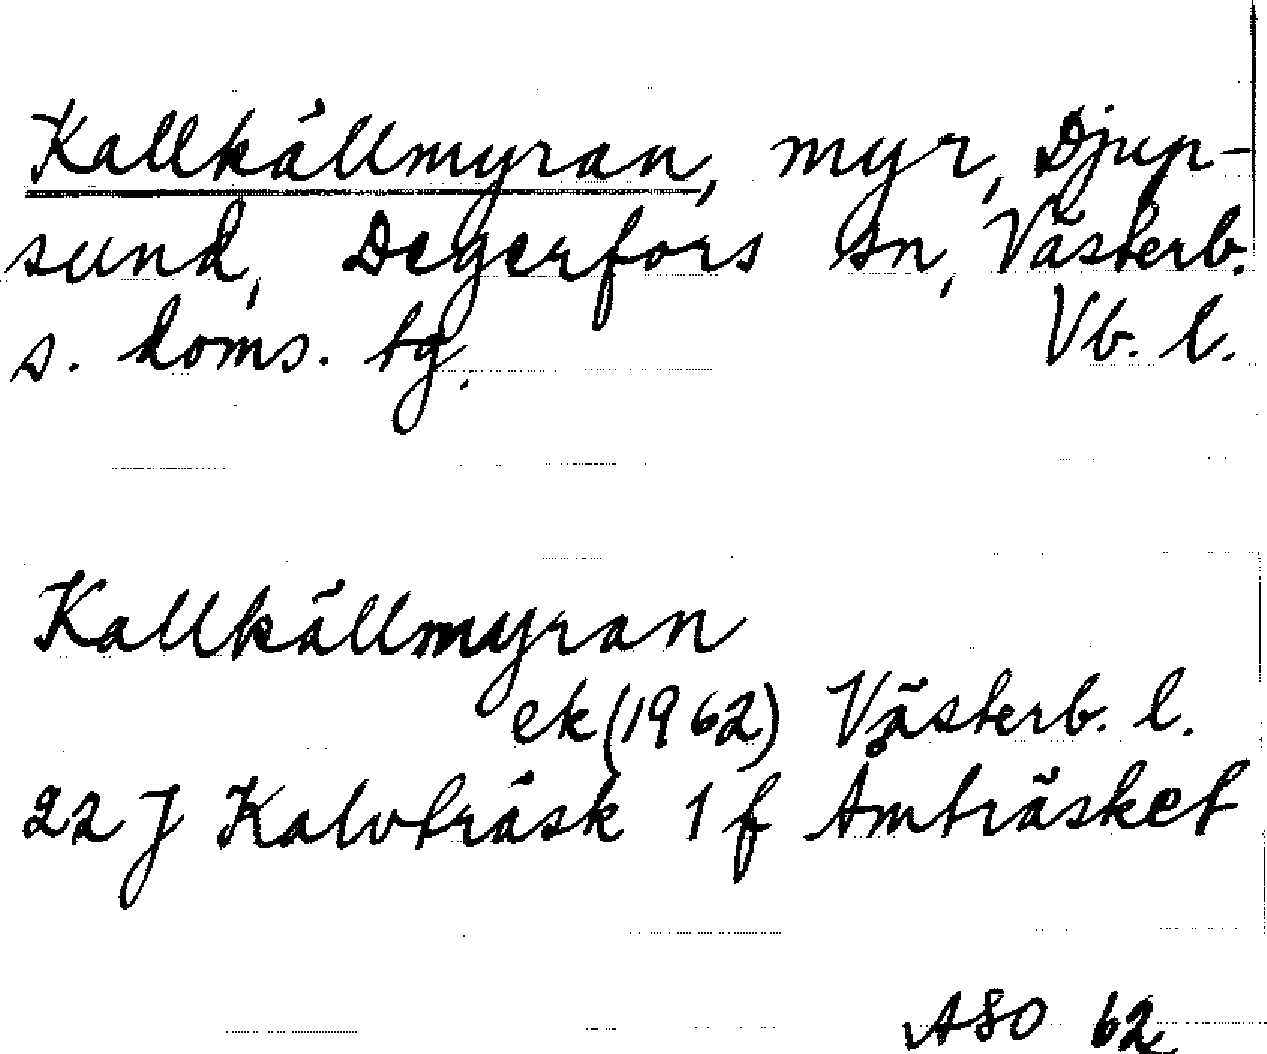 Kallkällmyran, myr, Djup-
sund, Degerfors sn, Västerb.
s. doms. tg. Vb. l.
Kallkällmyran
ek (1962) Västerb. l.
22 J Kalvträsk 1 f Åmträsket
ASO 62